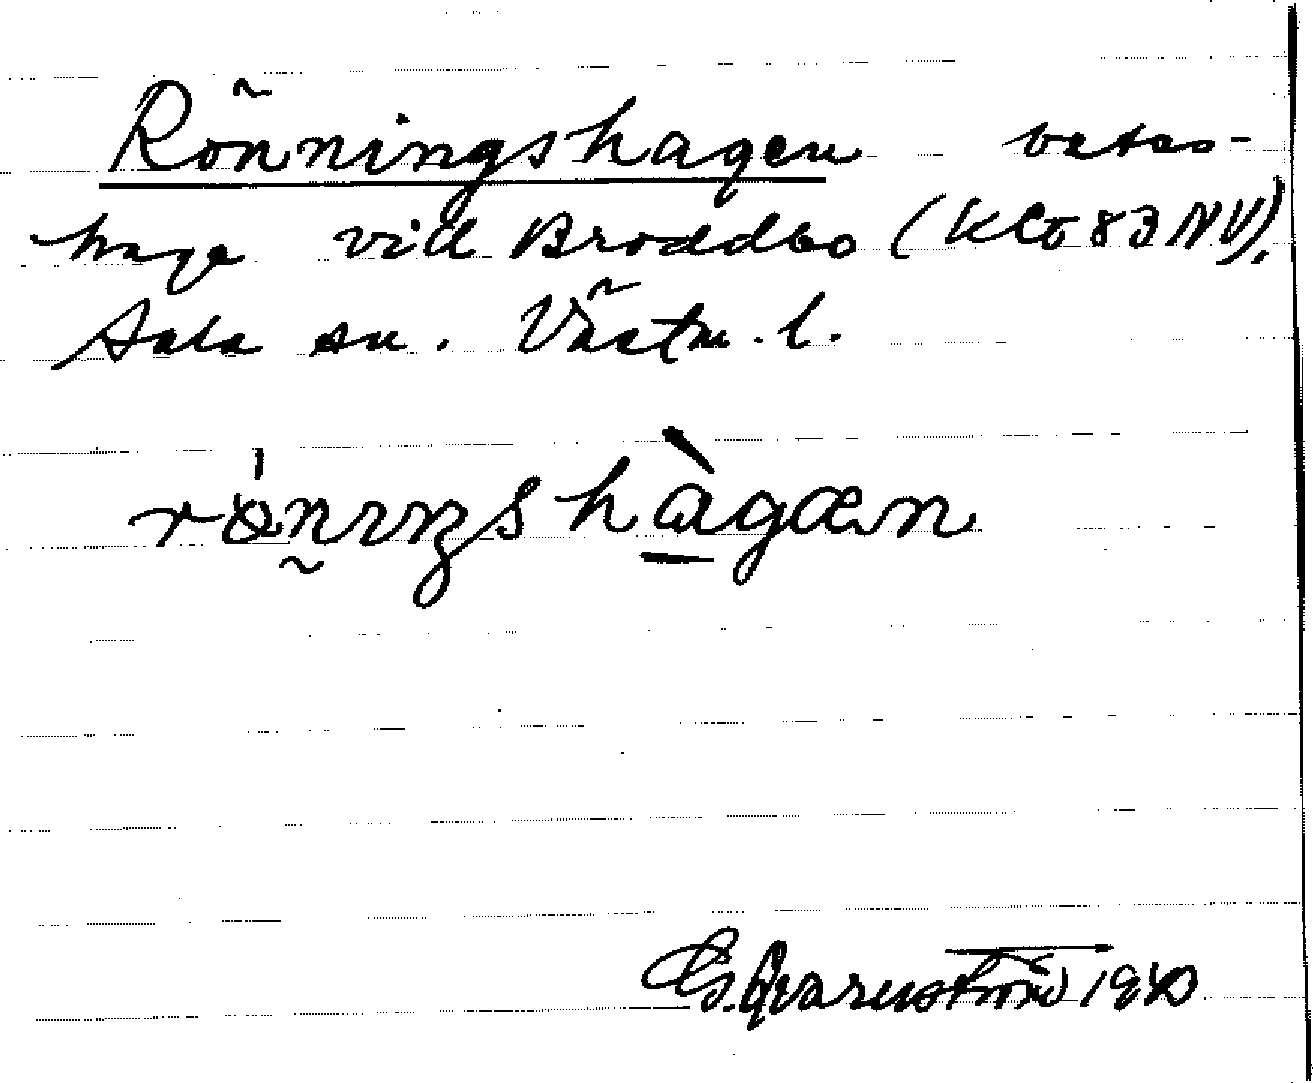 Rönningshagen betes-
hage vid Broddbo (Klt 83 NV),
Sala sn. Västm. l.
rönıŋshàgæn
G. Qvarnström 1940